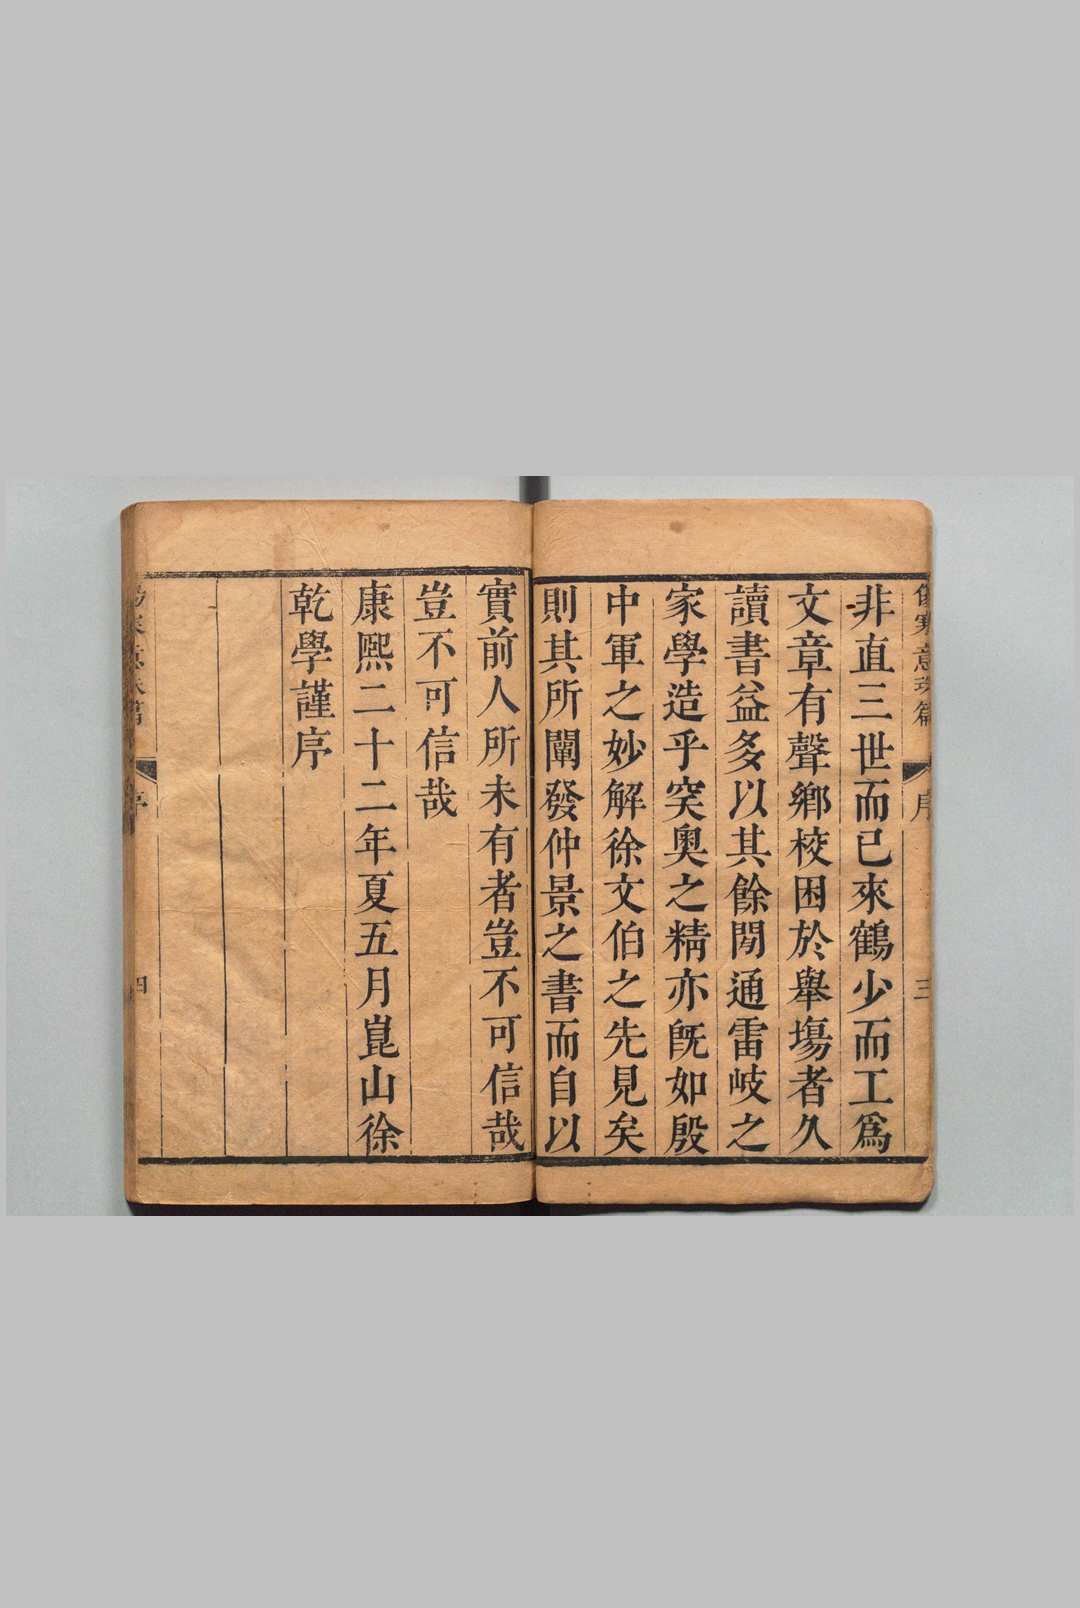 傷寒意珠篇 序 三
非直三世而已來鶴少而工爲
文章有聲鄉校困於舉塲者久
讀書益多以其餘閒通雷岐之
家學造乎突奧之精亦旣如殷
中軍之妙解徐文伯之先見矣
則其所闡發仲景之書而自以
實前人所未有者豈不可信哉
豈不可信哉
康熙二十二年夏五月崑山徐
乾學謹序
序 四